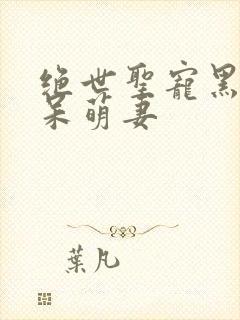 绝世聖寵黑
呆萌妻
葉凡